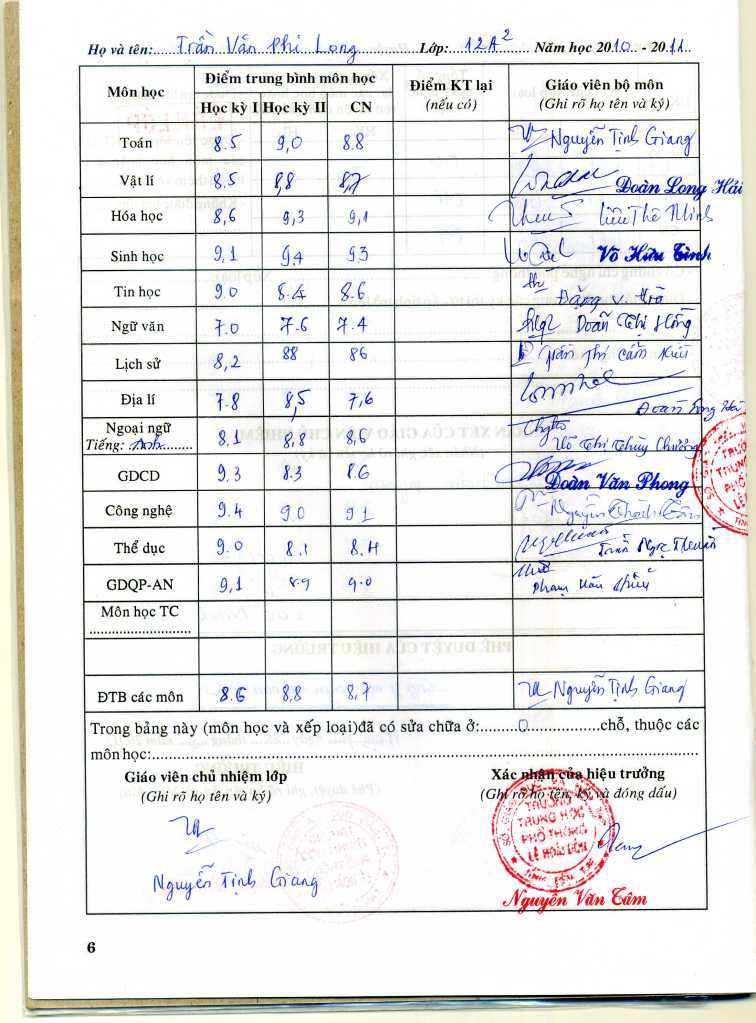 Họ và tên: Trần Văn Phi Long Lớp: 12A2 Năm học 2010 - 2011
Môn học Điểm trung bình môn học Điểm KT lại (nếu có) Giáo viên bộ môn (Ghi rõ họ tên và ký)
Học kỳ I Học kỳ II CN
Toán 8.5 9,0 8.8 Nguyễn Tịnh Giang
Vật lí 8.5 8,8 8,7 Đoàn Long Hải
Hóa học 8,6 9,3 9,1
Sinh học 9,1 9.4 9.3 Võ Hữu Tình
Tin học 9.0 8.4 8.6 Đặng V. Hà
Ngữ văn 7.0 7.6 7.4 Đoãn Thị Hồng
Lịch sử 8,2 88 86
Địa lí 7.8 8,5 7,6 Đoàn Long Hải
Ngoại ngữ
Tiếng: Anh 8,1 8,8 8,6 Võ Thị Thùy Chương
GDCD 9,3 8.3 8.6 Đoàn Văn Phong
Công nghệ 9.4 9.0 9.1 Nguyễn
Thể dục 9.0 8.1 8.4 Trần Ngọc Thuận
GDQP-AN 9,1 8.9 9.0 Phạm Văn
Môn học TC
ĐTB các môn 8.6 8,8 8,7 Nguyễn Tịnh Giang
Trong bảng này (môn học và xếp loại)đã có sửa chữa ở: 0 chỗ, thuộc các
môn học:
Giáo viên chủ nhiệm lớp Xác nhận của hiệu trưởng
(Ghi rõ họ tên và ký) (Ghi rõ họ tên, ký và đóng dấu)
TRƯỜNG
TRUNG HỌC
PHỔ THÔNG
LÊ HOÀN
Nguyễn Tịnh Giang
Nguyễn Văn Tâm
6